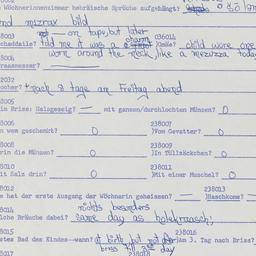 Wöchnerionenzimmer hebräische Sprüche aufgehängt?
and mizrax bild
8003 not — on tape, but later 036014
told me it was a charm )Größe? child wore one
worn around the neck, like a mezuzza today
8004
2032
+ noch 8 tage am Freitag abend
8005
in Briss: Halsgeseig? — mit ganzen/durchlochten Münzen? O
8006 238007
n wem geschenkt? O )Vom Gevatter? O
8008 238009
rin die Münzen? O )In Tüllsäckchen? O
8010 238011
it Salz drin? O )Mit einer Muschel? O
8012 238013
e hat der erste Ausgang der Wöchnerin geheissen? — )Haschkome?
8014 nichts besonders
lche Bräuche dabei? same day as holekraasch;
8015 238016
stes Bad des Kindes--wann? at birth, but not )Am 3. Tag nach Briss?
8017 briss till 3rd day